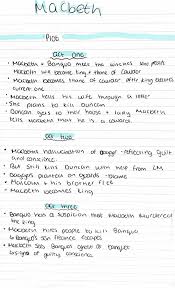 Macbeth
Plot
act one
• Macbeth + Banquo meets the witches who
Macbeth will become king + thane of Cawdor
• Macbeth becomes thane of Cawdor after king
current one
• Macbeth tells his wife through a letter
• She plans to kill Duncan
• Duncan goes to their house + Lady Macbeth
tells Macbeth that he is a coward.
act two
• Macbeths hallucination of dagger - reflecting guilt
and conscience
• But still kills Duncan with help from LM
• Daggers planted on guards - blame
• Malcolm + his brother flee
• Macbeth becomes king
act three
• Banquo has a suspicion that Macbeth murdered
the king
• Macbeth hires people to kill Banquo
↳ Banquo's son Fleance escapes
• Macbeth sees Banquo's ghost at banquet
↳ signs of guilty conscience